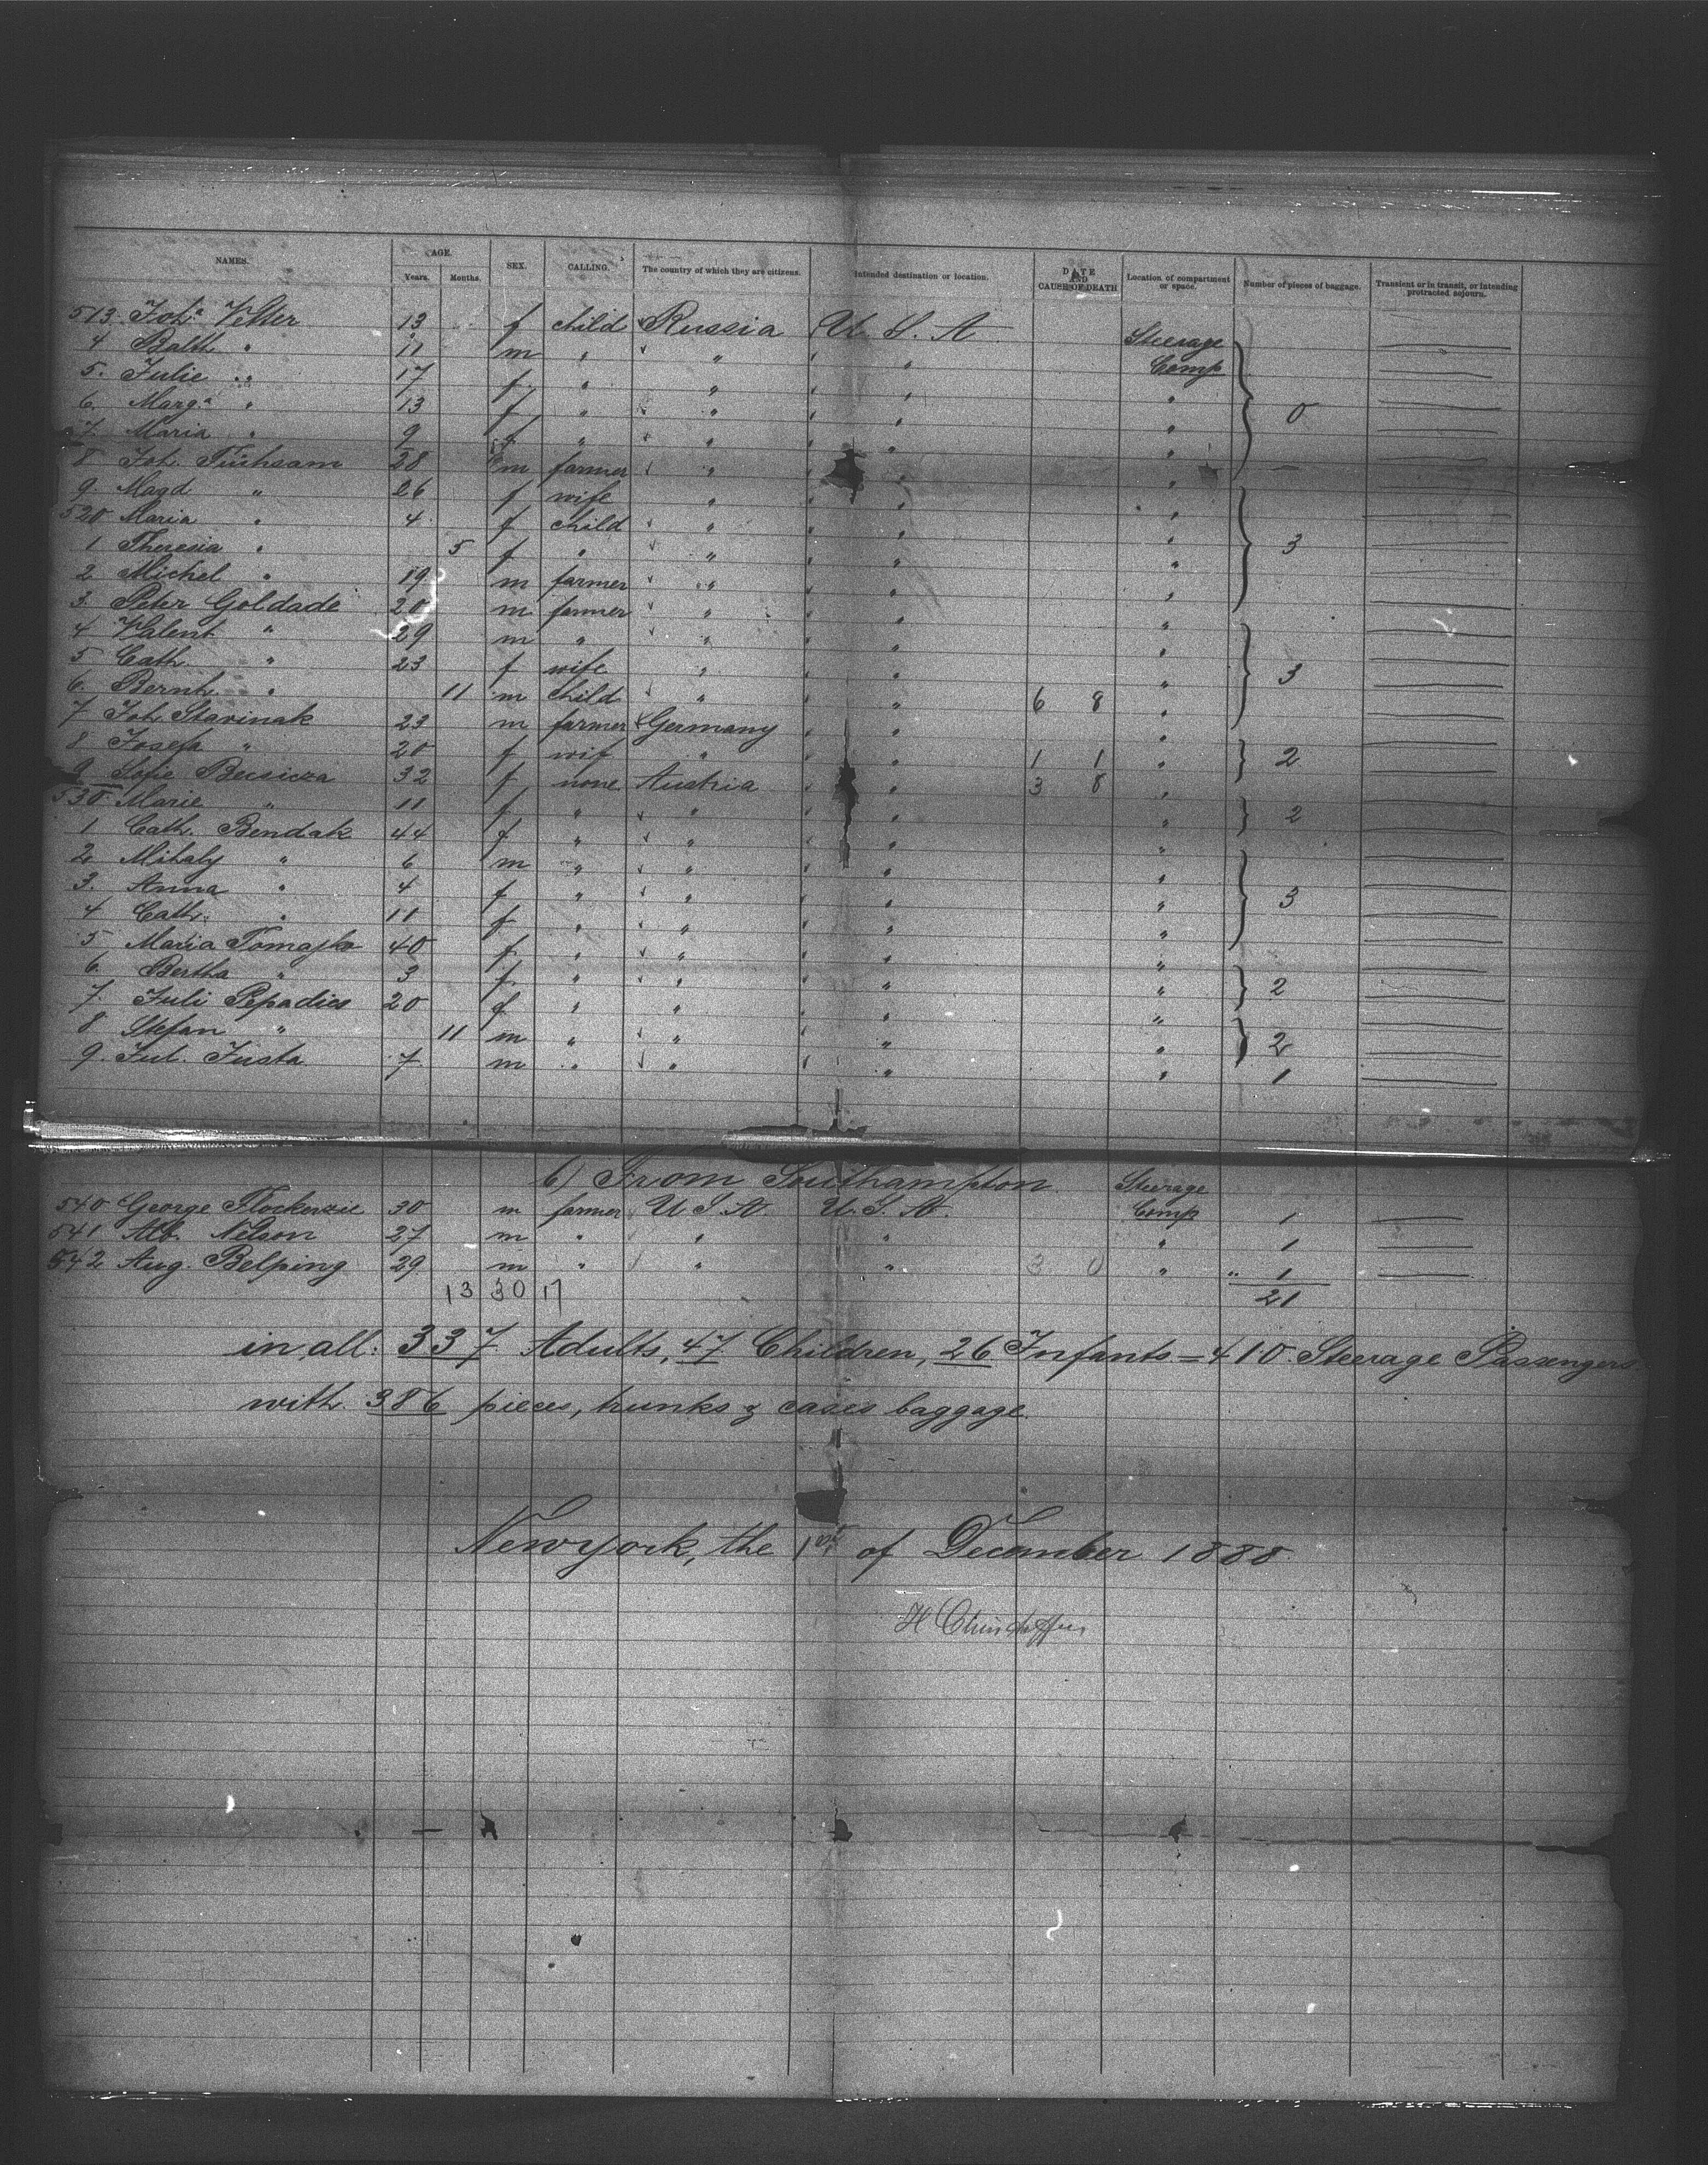 NAMES. AGE. Years. Months. SEX. CALLING. The country of which they are citizens. Intended destination or location. DATE AND CAUSE OF DEATH Location of compartment or space. Number of pieces of baggage. Transient or in transit, or intending protracted sojourn.
513 Joha Vetter 13 f child Russia U. S. A Steerage
4 Balth " 11 m " " " " Comp
5. Julie " 17 f " " " " "
6. Marga " 13 f " " " " " 0
7. Maria " 9 f " " " " "
8 Joh. Tuchsam 28 m farmer " " " "
9. Magd " 26 f wife " " " "
520 Maria " 4 f child " " " "
1 Theresia " 5 f " " " " " 3
2 Michel " 19 m farmer " " " "
3. Peter Goldade 20 m farmer " " " "
4 Valent " 29 m " " " " "
5 Cath. " 23 f wife " " " " 3
6. Bernh. " 11 m child " " " 6 8 "
7 Joh. Stavinak 23 m farmer Germany " " "
8 Josefa " 20 f wif " " " 1 1 " 2
9 Sofie 32 f none Austria " " 3 8 "
530 Marie " 11 f " " " " " 2
1 Cath. Bendak 44 f " " " " "
2 Mihaly " 6 m " " " " "
3. Anna " 4 f " " " " " 3
4 Cath. " 11 f " " " " "
5 Maria Tomajko 40 f " " " " "
6. Bertha " 3 f " " " " " 2
7. Juli Repadies 20 f " " " " "
8 Stefan " 11 m " " " " " 2
9. Jul. Justa 7 m " " " " " 1
6) From Southampton
540 George Flockenzie 30 m farmer U. S. A. U. S. A. Steerage Comp 1
541 Alb. Nelson 27 m " " " " 1
542 Aug. Belping 29 m " " " 3 0 " " 1
13 30 17 21
in all: 337 Adults, 47 Children, 26 Infants = 410 Steerage Passengers
with 386 pieces, trunks & cases baggage.
Newyork, the 1st of December 1888.